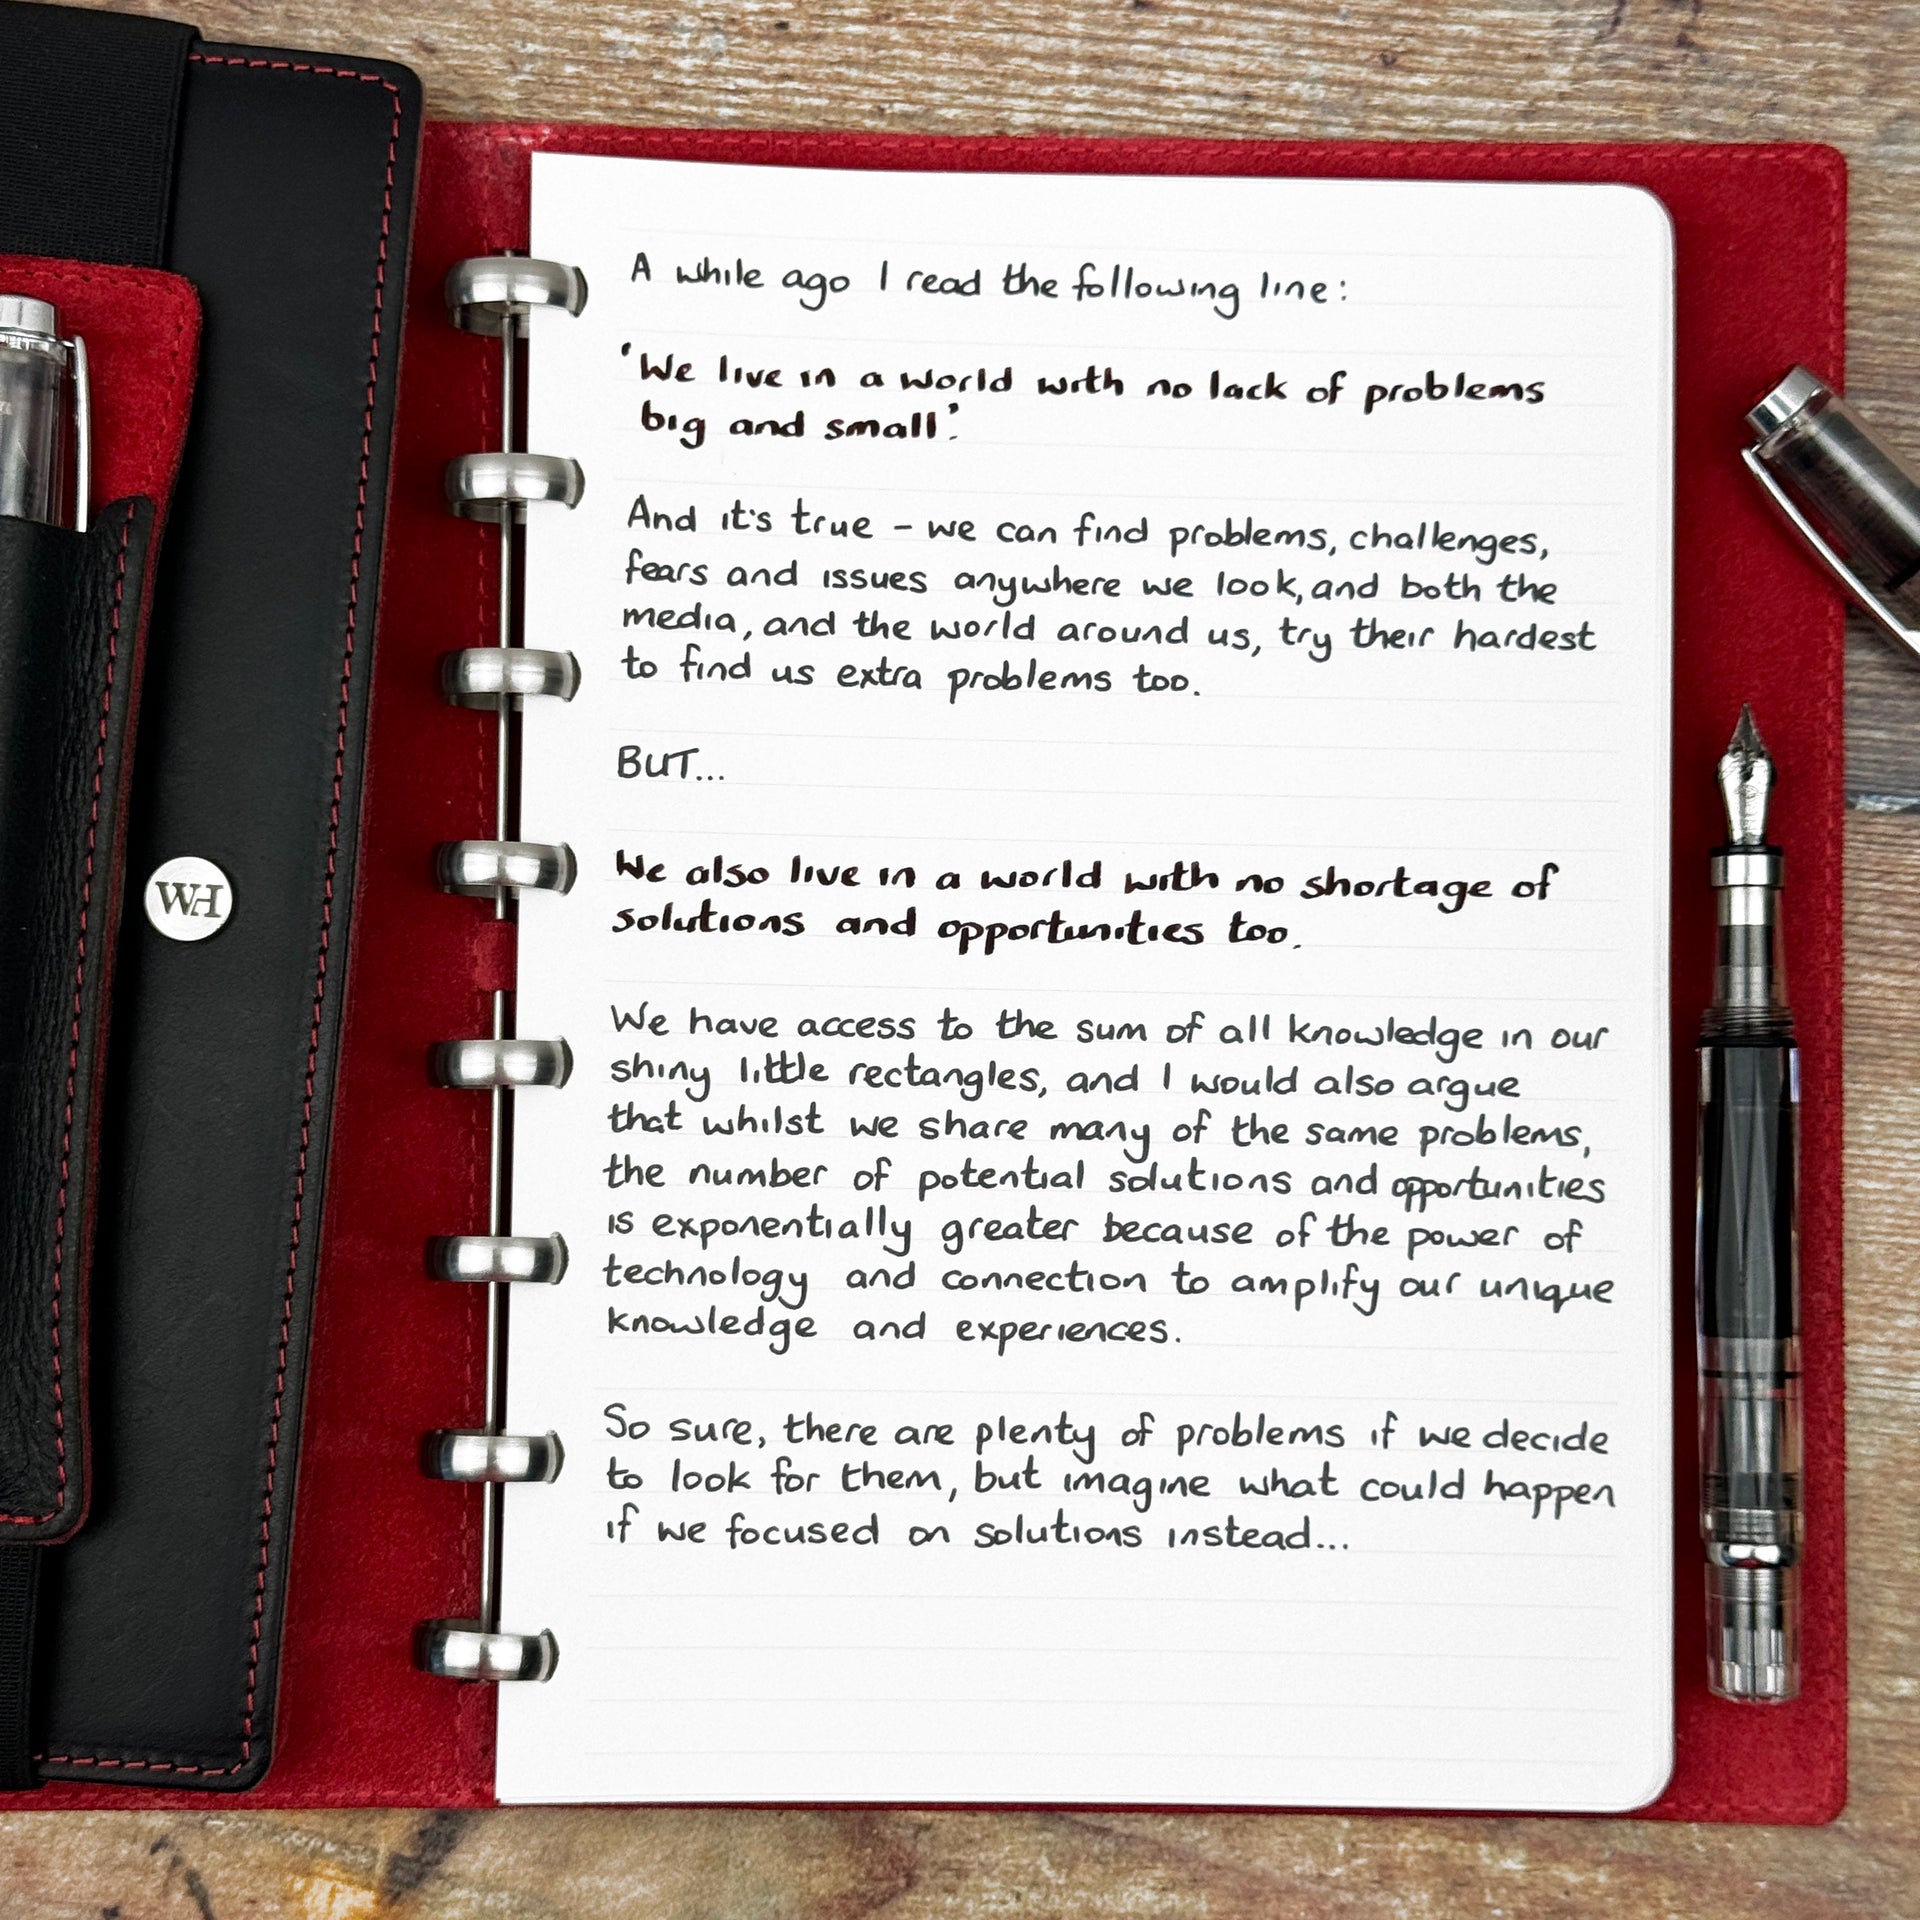 WH
A while ago I read the following line:
'We live in a world with no lack of problems
big and small'.
And it's true - we can find problems, challenges,
fears and issues anywhere we look, and both the
media, and the world around us, try their hardest
to find us extra problems too.
BUT...
We also live in a world with no shortage of
solutions and opportunities too.
We have access to the sum of all knowledge in our
shiny little rectangles, and I would also argue
that whilst we share many of the same problems,
the number of potential solutions and opportunities
is exponentially greater because of the power of
technology and connection to amplify our unique
knowledge and experiences.
So sure, there are plenty of problems if we decide
to look for them, but imagine what could happen
if we focused on solutions instead...